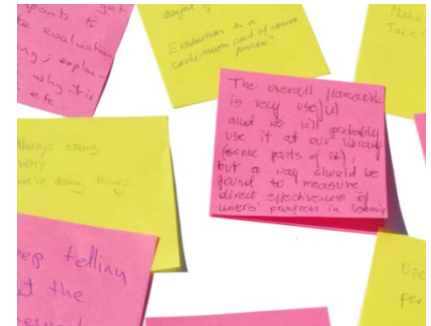 to
evaluation
explan-
why it is
etc.
Evaluation as a
continuous part of course
process?
Make
Take
The overall framework
is very useful
and we will probably
use it at our library
(some parts of it),
but a way should be
found to measure
direct effectiveness of
users' progress in
Always asking
WHY
we're doing things
keep telling
the
Use
per